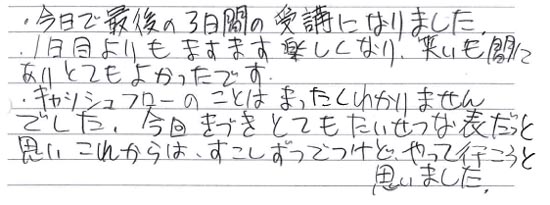 ・今日で最後の3日間の受講になりました.
・1日目よりもますます楽しくなり、笑いも間に
ありとてもよかったです.
・キャッシュフローのことはまったくわかりません
でした. 今回きづきとてもたいせつな表だっと
思い これからは、すこしずつでつけど、やって行こうと
思いました.